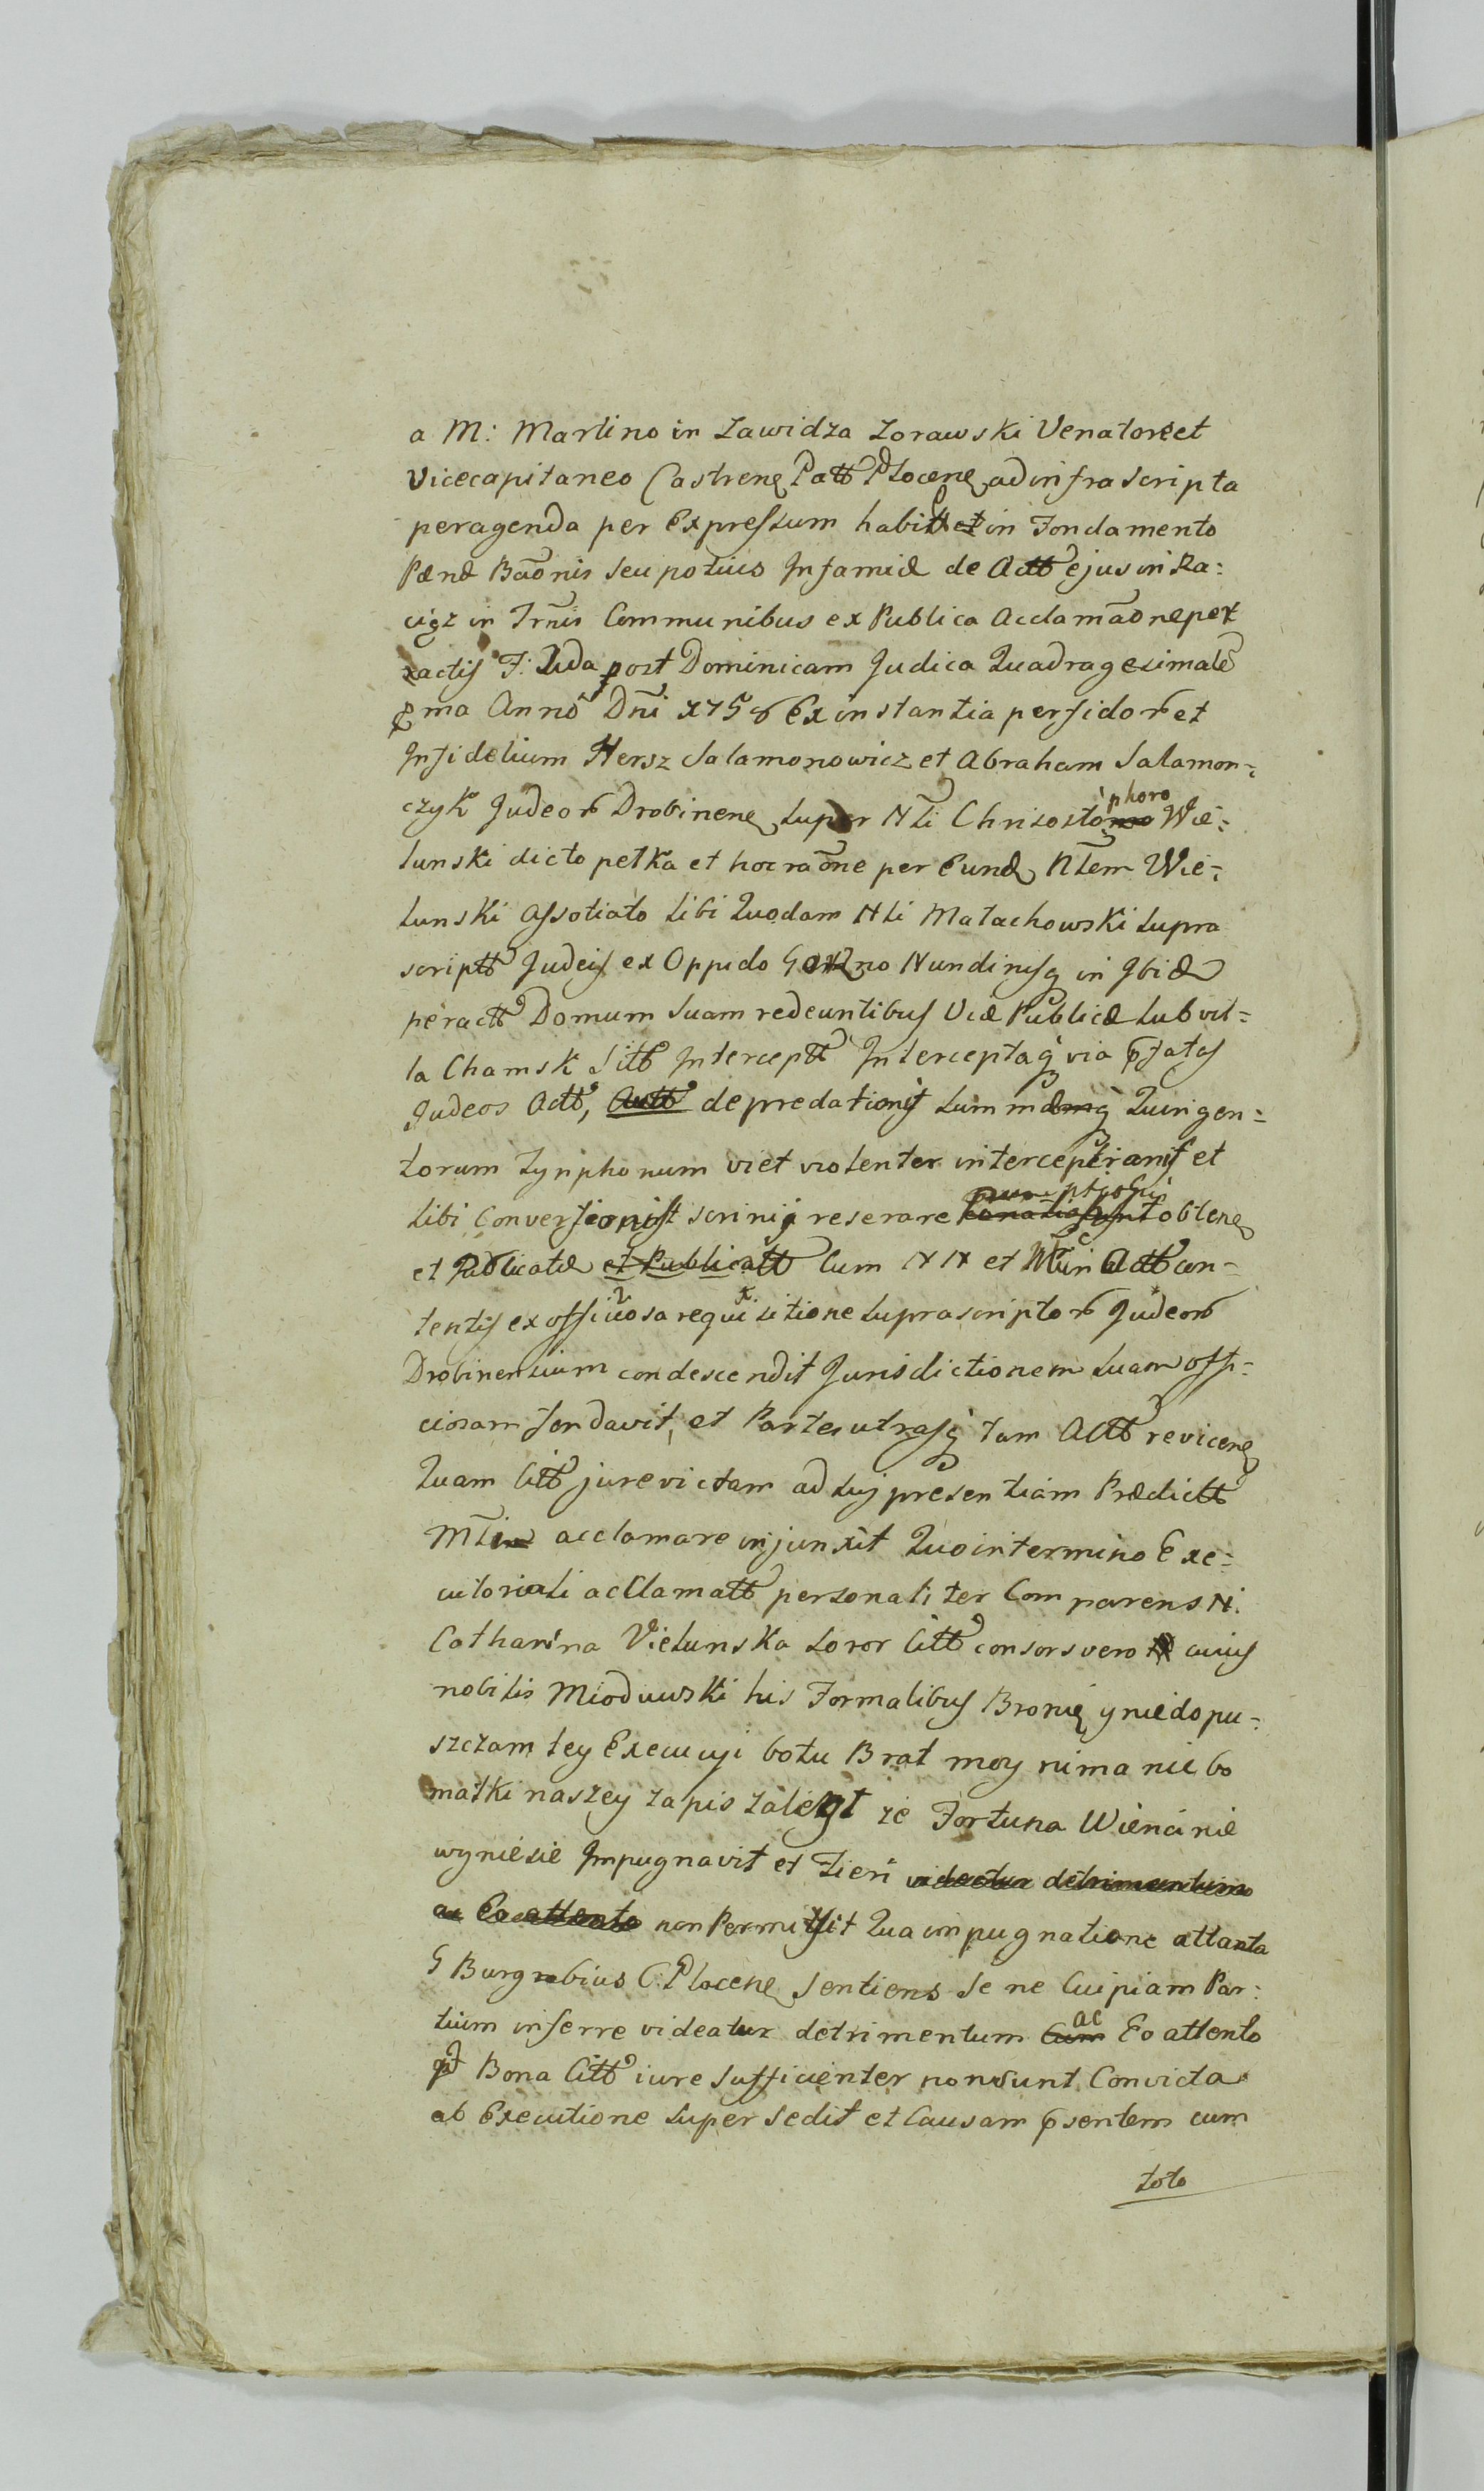 a M: Martino in Zawidza Zorawski Venatore et
Vicecapitaneo Castrenȩ Patt Plocenȩ ad infra scripta
peragenda per Expressum habitt et in Fondamento
Pænæ Bãonis seu potius Infamiæ de Actt ejus in Ra:
ciąz in Trñis Communibus ex Publica Acclamãone per
actis F: 2da post Dominicam Judica Quadragesimale
pma Anno Dñi 1758 Ex instantia perfidor et
Infidelium Hersz Salamonowicz et Abraham Salamon-
czyk Judeor Drobinenȩ super Nli Chrisostophoro Wie-
lunski dicto petka et hoc raõne per Eund Nlem Wie-
lunski assotiato sibi Quodam Nli Małachowski supra
scriptt Judeis ex Oppido Gorzno Nundinisq in Ibid
peractt Domum suam redeuntibus Viæ Publicæ sub vil-
la Chamsk sitt Interceptt Interceptaq via pfatos
Judeos Actt, Actt depredationis summæq Quingen-
torum Tynphonum vi et violenter interceptionis et
sibi Conversionist scrinii reserare obtenȩ
et Publicatæ et Publicatt Cum NN et Mlin Actt con-
tentis ex officiosa requisitione suprascriptor Judeor
Drobinensium condescendit Jurisdictionem suam offi-
ciosam fondavit, et Partes utrasq tam Actt revicenȩ
Quam Citt jure victam ad sui presentiam Prædictt
Mlin acclamare injunxit Quo in termino Exe-
cutoriali acclamatt personaliter Comparens N.
Catharina Vielunska soror Citt consors vero cuius
nobilis Mioduwski his Formalibus Bronię y nie dopu-
szczam tey Execucyi bo tu Brat moy nima nic bo
matki naszey zapis zaległ że Fortuna Wienci nie
wyniesie Impugnavit et Fieri videatur detrimentum
ac Eo attento non Permissit Qua impugnatione attenta
G Burgrabius C. Plocenȩ sentiens se ne Cuipiam Par:
tium inferre videatur detrimentum Cum ac Eo attento
qd Bona Citt iure sufficienter non sunt Convicta
ab Executione supersedit et Causam psentem cum
toto